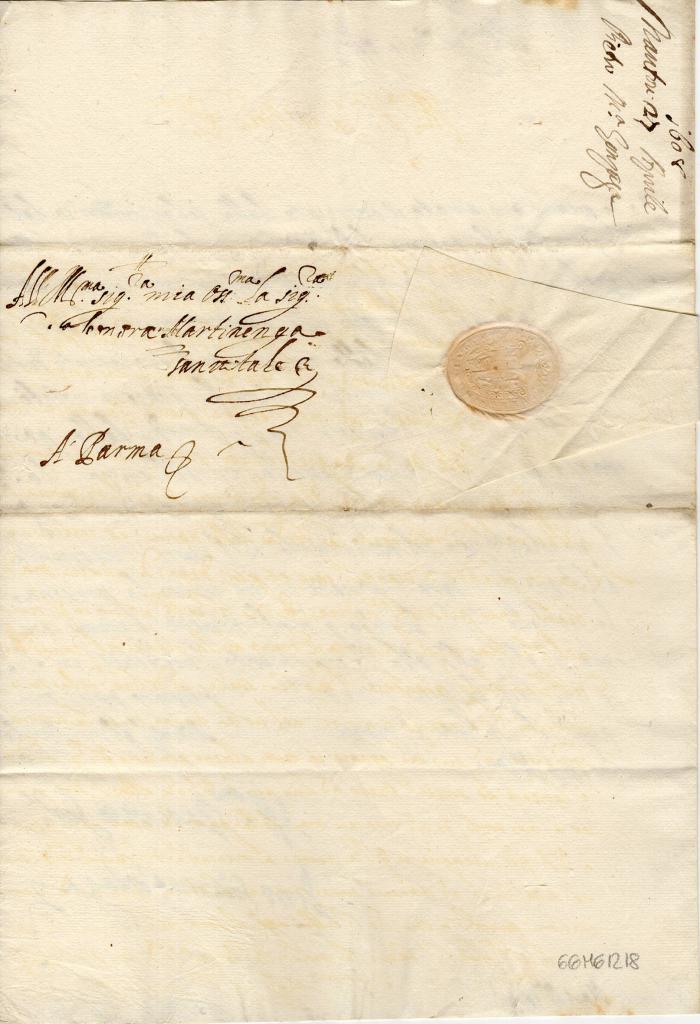 1608
Mantoa 27 Aprile
Pietro Mª Gonzaga
All Ill.ma sig.ra mia oss.ma la sig.ra
Leonora Martinenga
Sanvitale
A Parma
66M61218